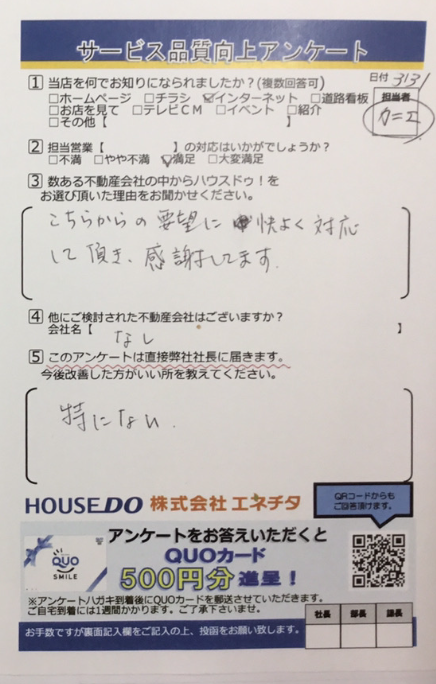 サービス品質向上アンケート
日付 3/31
1 当店を何でお知りになられましたか？(複数回答可)
□ホームページ □チラシ ☑インターネット □道路看板
□お店を見て □テレビCM □イベント □紹介
□その他【 】
担当者
カニエ
2 担当営業【 】の対応はいかがでしょうか？
□不満 □やや不満 ☑満足 □大変満足
3 数ある不動産会社の中からハウスドゥ！を
お選び頂いた理由をお聞かせください。
こちらからの要望に快よく対応
して頂き、感謝してます。
4 他にご検討された不動産会社はございますか？
会社名【 なし 】
5 このアンケートは直接弊社社長に届きます。
今後改善した方がいい所を教えてください。
特にない.
HOUSEDO 株式会社 エネチタ
QRコードからも
ご回答頂けます。
アンケートをお答えいただくと
QUOカード
500円分 進呈！
QUO
SMILE
※アンケートハガキ到着後にQUOカードを郵送させていただきます。
ご自宅到着には1週間かかります。ご了承下さいませ。
社長 部長 課長
お手数ですが裏面記入欄をご記入の上、投函をお願い致します。